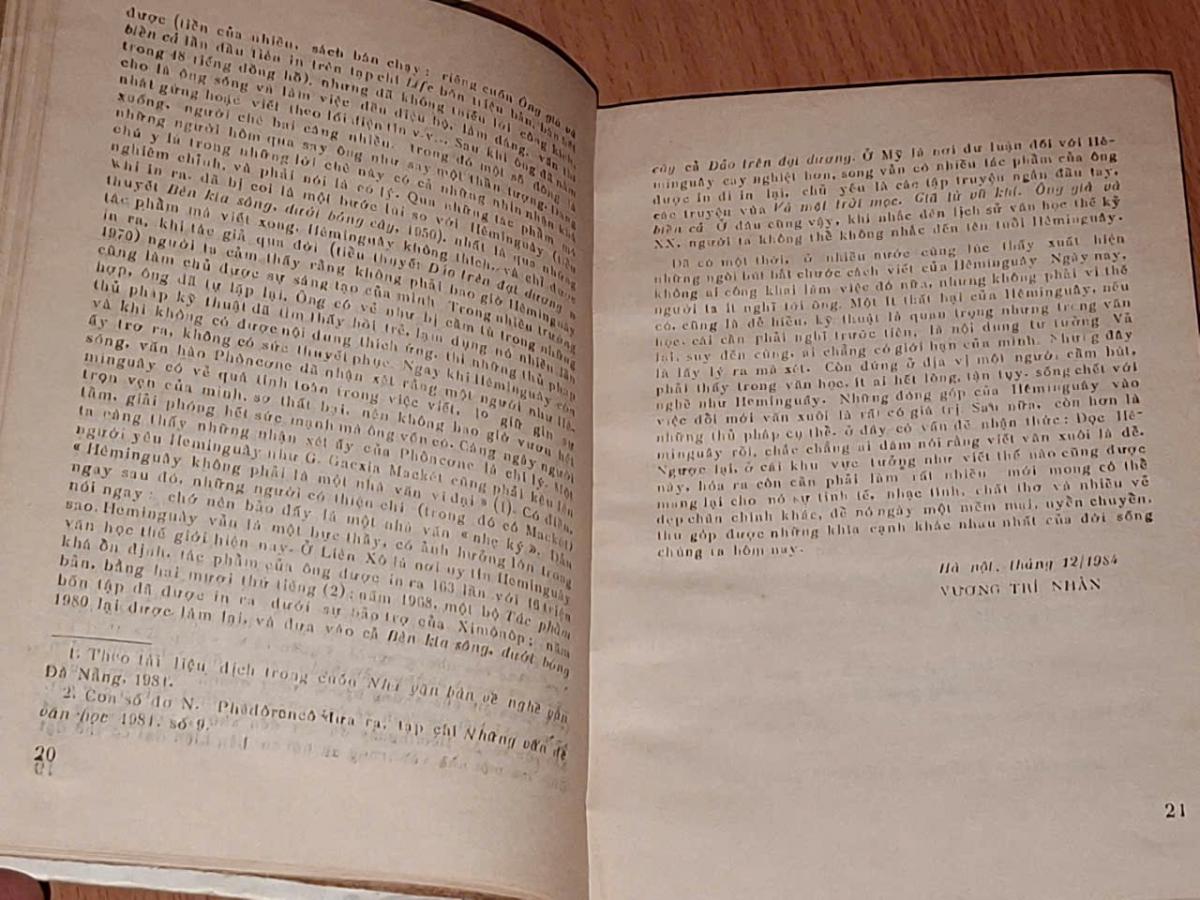 được (tiền của nhiều, sách bán chạy; riêng cuốn Ông già và
biển cả lần đầu tiên in trên tạp chí Life bốn triệu bản, bán hết
trong 48 tiếng đồng hồ), nhưng đã không thiếu lời công kích,
cho là ông sống và làm việc đều điệu bộ, làm dáng, văn thì
nhát gừng hoặc viết theo lối điện tín v.v... Sau khi ông đã nằm
xuống, người chê bai càng nhiều, trong đó một số đông là
những người hôm qua say ông như say một thần tượng. Đáng
chú ý là trong những lời chê này có cả những nhìn nhận khá
nghiêm chỉnh, và phải nói là có lý. Qua những tác phẩm mà
khi in ra, đã bị coi là một bước lại so với Hêminguây (tiểu
thuyết Bên kia sông, dưới bóng cây, 1950), nhất là qua những
tác phẩm mà viết xong, Hêminguây không thích, và chỉ được
in ra, khi tác giả qua đời (tiểu thuyết Đảo trên đại dương
1970) người ta cảm thấy rằng không phải bao giờ Hêminguây
cũng làm chủ được sự sáng tạo của mình Trong nhiều trường
hợp, ông đã tự lặp lại. Ông có vẻ như bị cầm tù trong những
thủ pháp kỹ thuật đã tìm thấy hồi trẻ, lạm dụng nó nhiều lần
và khi không có được nội dung thích ứng, thì những thủ pháp
ấy trơ ra, không có sức thuyết phục. Ngay khi Hêminguây còn
sống, văn hào Phôncơne đã nhận xét rằng một người như Hê-
minguây có vẻ quá tính toán trong việc viết, lo giữ gìn sự
trọn vẹn của mình, sợ thất bại, nên không bao giờ vươn hết
tầm, giải phóng hết sức mạnh mà ông vốn có. Càng ngày người
ta càng thấy những nhận xét ấy của Phôncơne là chí lý. Một
người yêu Hêminguây như G. Gacxia Mackét cũng phải kêu lên
« Hêminguây không phải là một nhà văn vĩ đại » (1). Có điều,
ngay sau đó, những người có thiện chí (trong đó có Mackét)
nói ngay: chớ nên bảo đấy là một nhà văn « nhẹ ký ». Dẫu
sao, Hêminguây vẫn là một bực thầy, có ảnh hưởng lớn trong
văn học thế giới hiện nay. Ở Liên Xô là nơi uy tín Hêminguây
khá ổn định, tác phẩm của ông được in ra 163 lần với triệu
bản, bằng hai mươi thứ tiếng (2); năm 1968, một bộ Tác phẩm
bốn tập đã được in ra dưới sự bảo trợ của Ximônôp; năm
1980 lại được làm lại, và đưa vào cả Bên kia sông, dưới bóng
1. Theo tài liệu dịch trong cuốn Nhà văn bàn về nghề văn
Đà Nẵng, 1981.
2. Con số do N. Phêđôrencô đưa ra, tạp chí Những vấn đề
văn học 1981, số 9.
20
cây cả Đảo trên đại dương. Ở Mỹ là nơi dư luận đối với Hê-
minguây cay nghiệt hơn, song vẫn có nhiều tác phẩm của ông
được in đi in lại, chủ yếu là các tập truyện ngắn đầu tay,
các truyện vừa Và mặt trời mọc. Giã từ vũ khí. Ông già và
biển cả Ở đâu cũng vậy, khi nhắc đến lịch sử văn học thế kỷ
XX, người ta không thể không nhắc đến tên tuổi Hêminguây.
Đã có một thời, ở nhiều nước cùng lúc thấy xuất hiện
những ngòi bút bắt chước cách viết của Hêminguây Ngày nay,
không ai công khai làm việc đó nữa, nhưng không phải vì thế
người ta ít nghĩ tới ông. Một ít thất bại của Hêminguây, nếu
có, cũng là dễ hiểu, kỹ thuật là quan trọng nhưng trong văn
học, cái cần phải nghĩ trước tiên, là nội dung tư tưởng Vả
lại, suy đến cùng, ai chẳng có giới hạn của mình. Nhưng đấy
là lấy lý ra mà xét. Còn đứng ở địa vị một người cầm bút,
phải thấy trong văn học, ít ai hết lòng, tận tụy, sống chết với
nghề như Hêminguây. Những đóng góp của Hêminguây vào
việc đổi mới văn xuôi là rất có giá trị Sau nữa, còn hơn là
những thủ pháp cụ thể, ở đây có vấn đề nhận thức: Đọc Hê-
minguây rồi, chắc chẳng ai dám nói rằng viết văn xuôi là dễ.
Ngược lại, ở cái khu vực tưởng như viết thế nào cũng được
này, hóa ra còn cần phải làm rất nhiều mới mong có thể
mang lại cho nó sự tinh tế, nhạc tính, chất thơ và nhiều vẻ
đẹp chân chính khác, để nó ngày một mềm mại, uyển chuyển,
thu góp được những khía cạnh khác nhau nhất của đời sống
chúng ta hôm nay.
Hà nội, tháng 12/1984
VƯƠNG TRÍ NHÀN
21